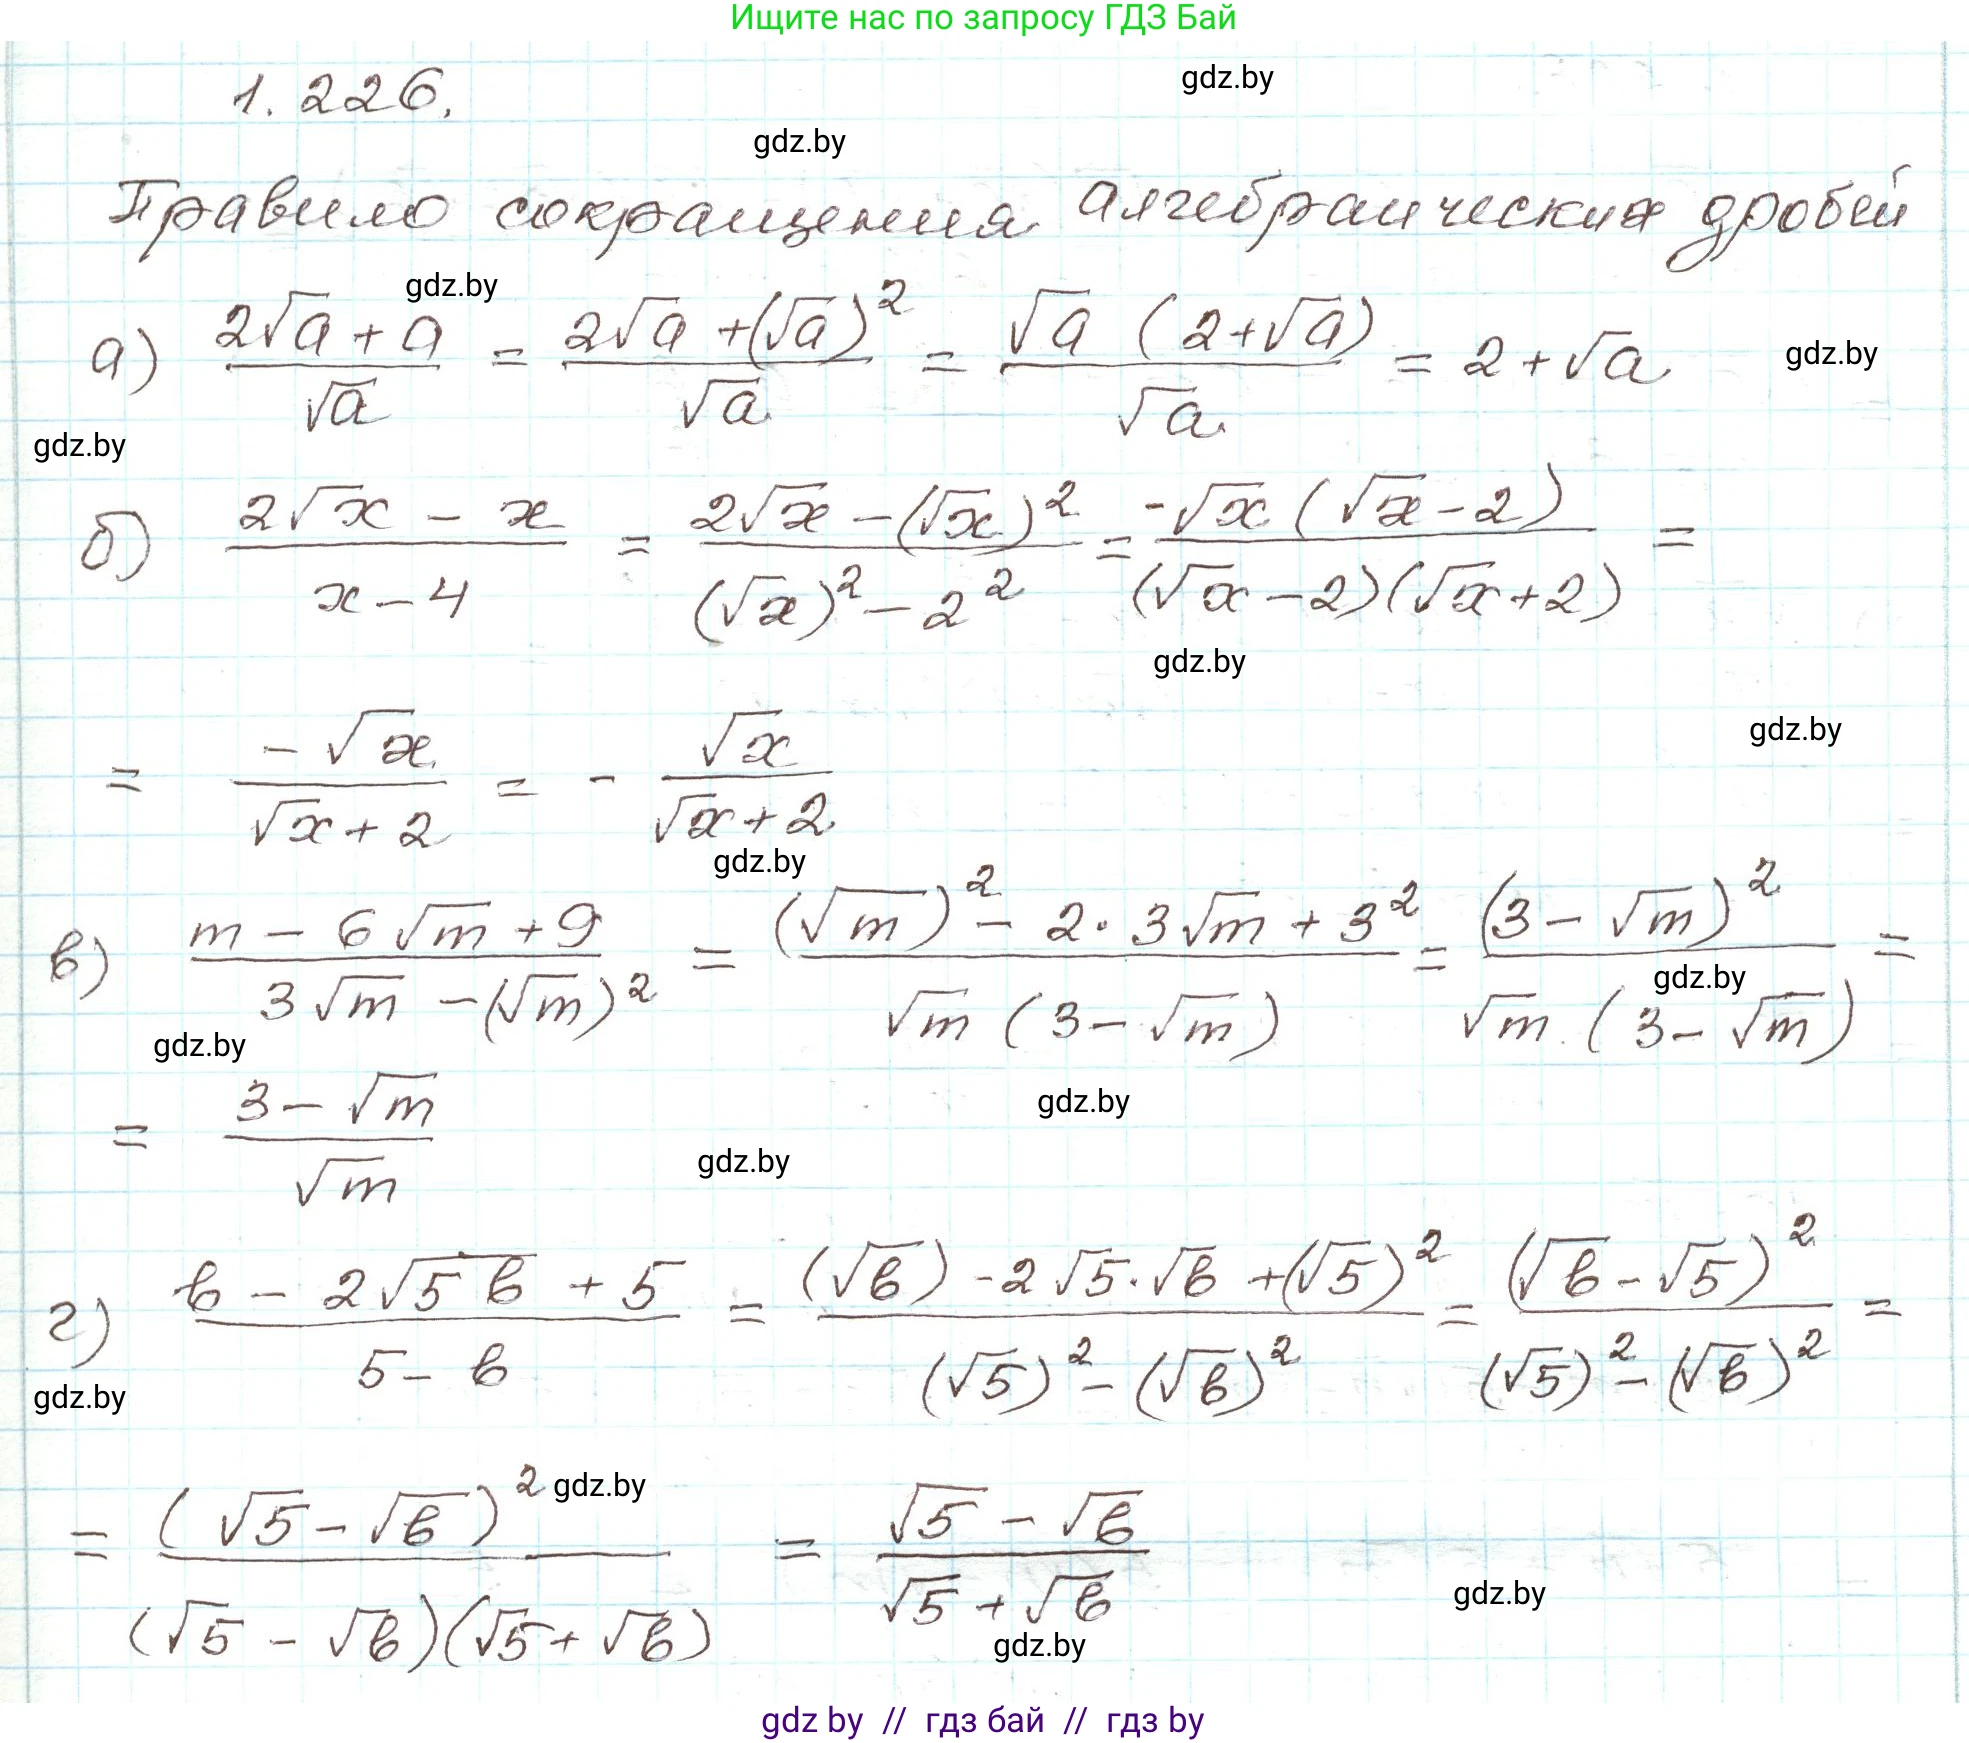 Ищите нас по запросу ГДЗ Бай
gdz.by
1.226.
gdz.by
Правило сокращения алгебраических дробей
gdz.by
а) (2√a + a)/√a = (2√a + (√a)²)/√a = (√a (2+√a))/√a = 2 + √a
gdz.by
gdz.by
б) (2√x − x)/(x − 4) = (2√x − (√x)²)/((√x)² − 2²) = (-√x (√x − 2))/((√x − 2)(√x + 2)) =
gdz.by
gdz.by
= (−√x)/(√x + 2) = − √x/(√x + 2)
gdz.by
в) (m − 6√m + 9)/(3√m − (√m)²) = ((√m)² − 2·3√m + 3²)/(√m (3 − √m)) = (3 − √m)²/(√m (3 − √m)) =
gdz.by
gdz.by
gdz.by
= (3 − √m)/√m
gdz.by
г) (b − 2√5b + 5)/(5 − b) = ((√b) − 2√5·√b + (√5)²)/((√5)² − (√b)²) = (√b − √5)²/((√5)² − (√b)²) =
gdz.by
gdz.by
= (√5 − √b)²/((√5 − √b)(√5 + √b)) = (√5 − √b)/(√5 + √b)
gdz.by
gdz.by
gdz by // гдз бай // гдз by